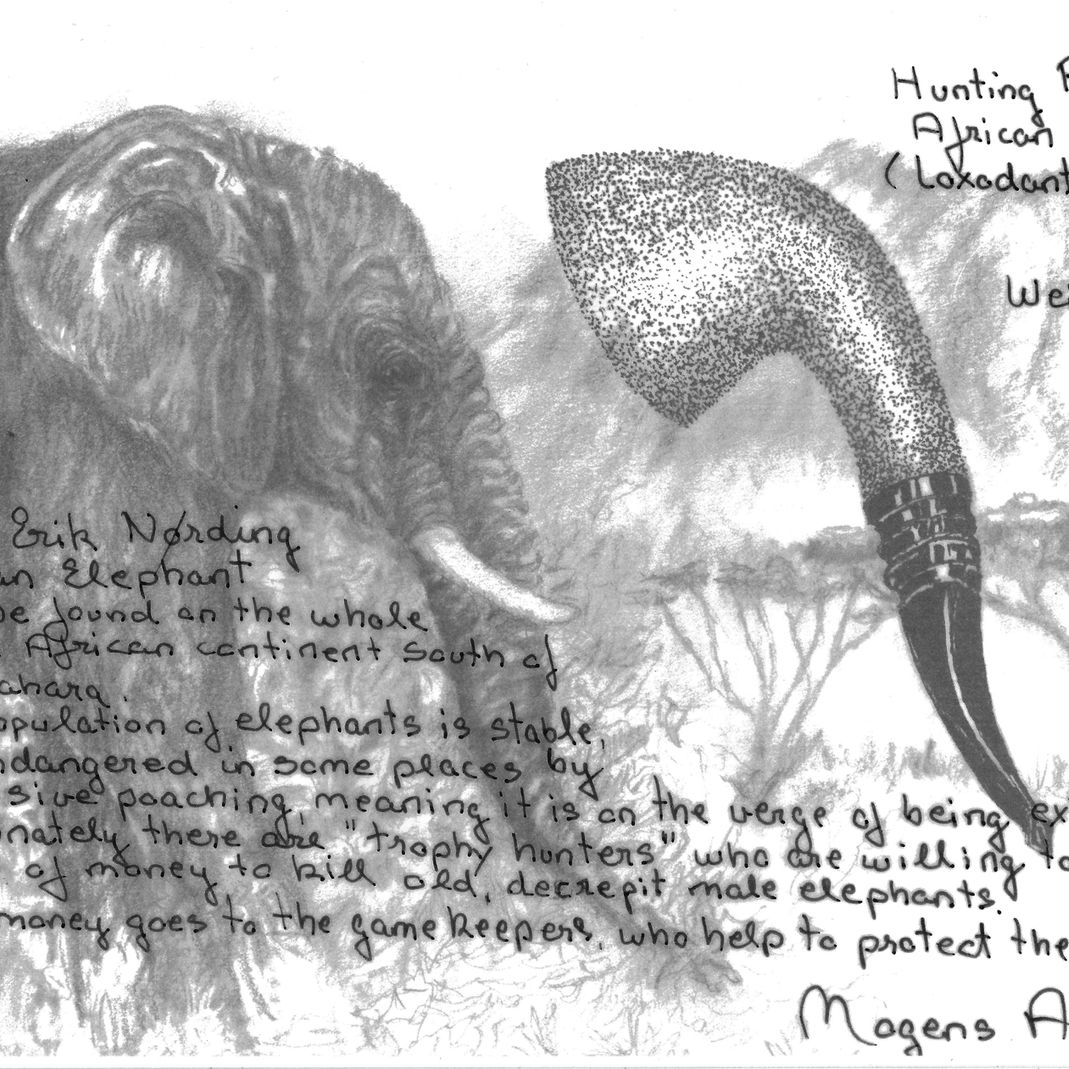 Hunting P
African
(Loxodant
We
Erik Nørding
an Elephant
be found on the whole
African continent south of
ahara.
opulation of elephants is stable,
ndangered in some places by
sive poaching, meaning it is on the verge of being ex
nately there are "trophy hunters" who are willing to
of money to kill old, decrepit male elephants.
money goes to the gamekeepers, who help to protect the
Mogens A